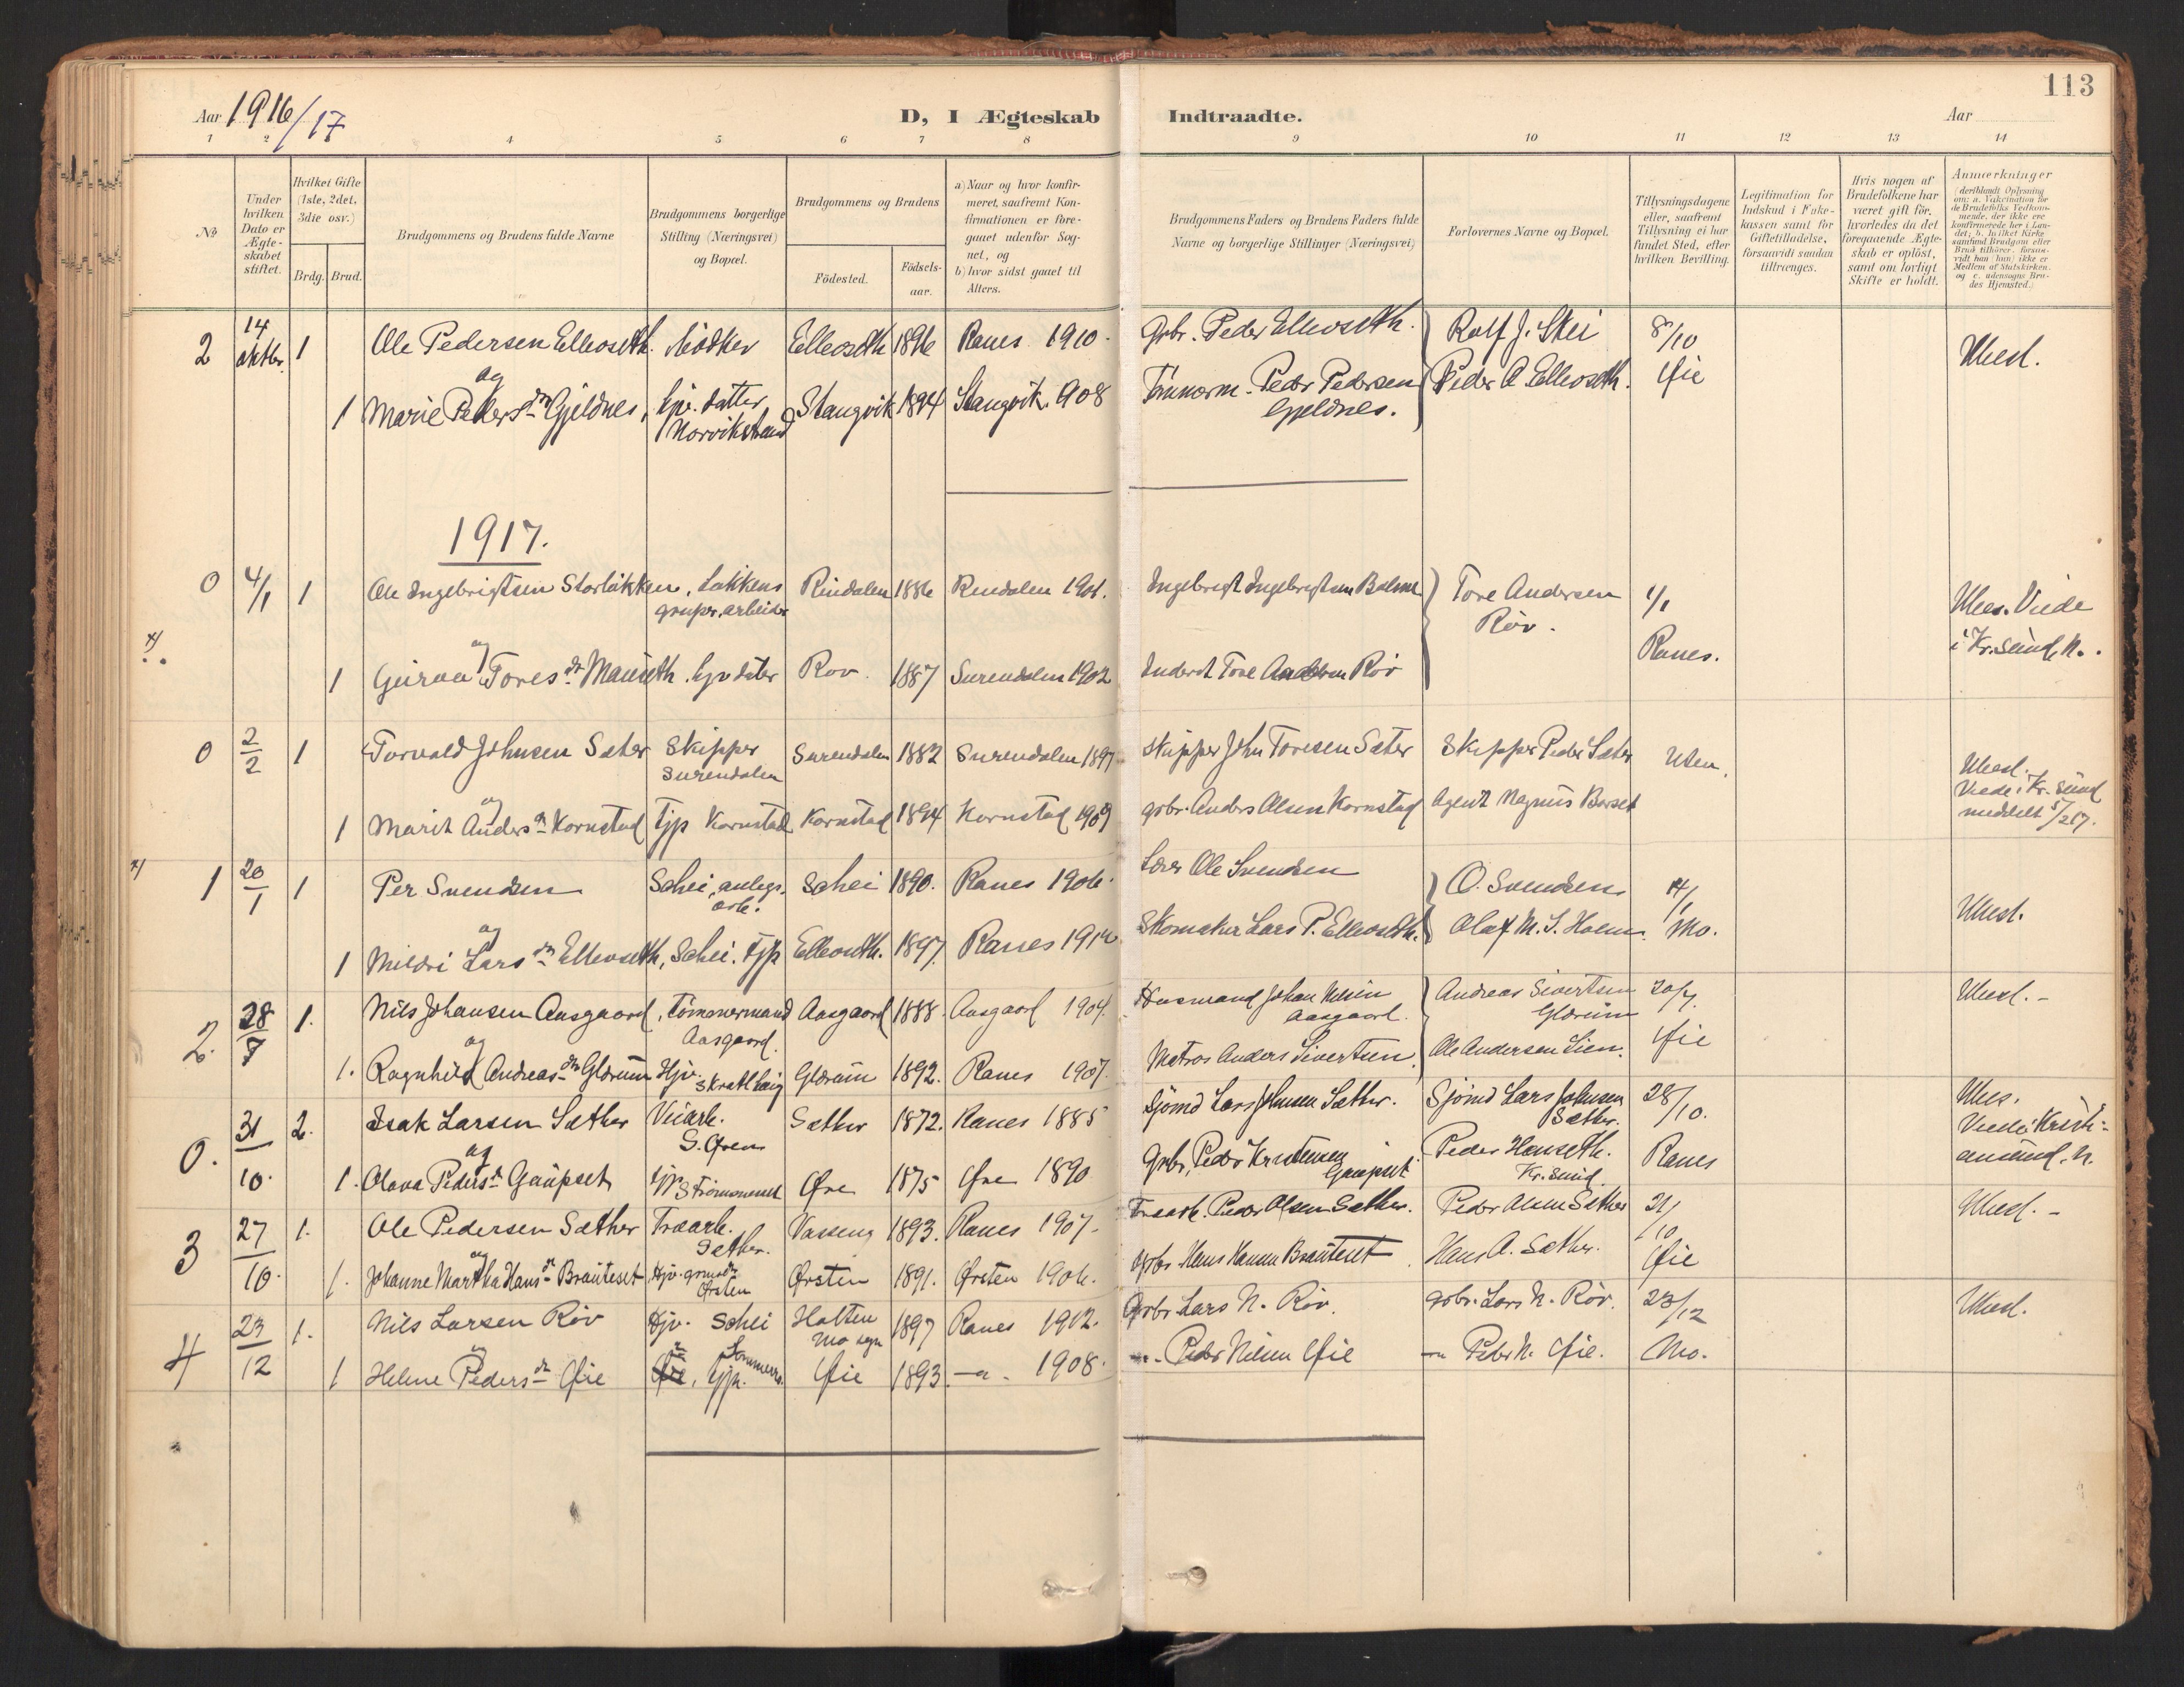 113
Aar 1916/17
D, I Ægteskab Indtraadte.
Aar
1 2 4 5 6 7 8 9 10 11 12 13 14
No
Under hvilken Dato er Ægte-skabet stiftet.
Hvilket Gifte (1ste, 2det, 3die osv.)
Brdg. Brud.
Brudgommens og Brudens fulde Navne
Brudgommens borgerlige Stilling (Næringsvei) og Bopæl.
Brudgommens og Brudens
Födested.
Födsels-aar.
a) Naar og hvor konfir-meret, saafremt Kon-firmationen er fore-gaaet udenfor Sog-net, og
b) hvor sidst gaaet til Alters.
Brudgommens Faders og Brudens Faders fulde Navne og borgerlige Stillinger (Næringsvei)
Forlovernes Navne og Bopæl.
Tillysningsdagene eller, saafremt Tillysning ei har fundet Sted, efter hvilken Bevilling.
Legitimation for Indskud i Fake-kassen samt for Giftetilladelse, forsaavidt saadan tiltrænges.
Hvis nogen af Brudefolkene har været gift för, hvorledes da det foregaaende Ægte-skab er oplöst, samt om lovligt Skifte er holdt.
Anmærkninger
2 14 oktbr. 1 Ole Pedersen Ellevseth. Bödker Ellevseth 1896 Ranes 1910. Gbr. Peder Ellevseth. Rolf J. Skei 8/10
og
1 Marie Peders dr Gjeldnes, Hjv. datter Norvikstrand Stangvik 1894 Stangvik 1908 Tömmerm. Peder Pedersen Gjeldnes. Peder A Ellevseth. Øie
1917.
0 4/1 1 Ole Ingebrigtsen Storlökken, Lökkens grube. arbeider Rindalen 1886 Rindalen 1901. Ingebrigt Ingebrigtsen Bolme Tore Andersen Röv. 1/1
og
1 Guroa Tores dr Mauseth. Hjv dater Rov. 1887 Surendalen 1902 Inderst Tore Andersen Röv Ranes. i Kr.sund N.
0 2/2 1 Torvald Johnsen Sæter Skipper Surendalen Surendalen 1882 Surendalen 1897 Skipper John Toresen Sæter Skipper Peder Sæter
og
1 Marit Anders dr Kornstad Tjp Kornstad Kornstad 1894 Kornstad 1909 gbr. Anders Olsen Kornstad Agent Magnus Bøset Viede i Kr. sund meddelt 5/2 17.
1 20/1 1 Per Svendsen Schei, anlegs. arb. Schei 1890. Ranes 1906. Lærer Ole Svendsen O. Svendsen 14/1
og
1 Mildri Lars dr Ellevseth, Schei. tjp Ellevseth. 1897. Ranes 1912 Skomaker Lars P. Ellevseth. Olaf M. S. Holm. Mo.
2. 28/7 1. Nils Johansen Aasgaard, Tömmermand Aasgaard. Aasgaard 1888. Aasgaard 1904. Husmand Johan Nilsen Aasgaard. Andreas Sivertsen Glærum 20/7.
og
1. Ragnhild Andreas dr Glærum Hjv. Skratlhaug Glærum 1892. Ranes 1907. Matros Anders Sivertsen. Ole Andersen Lien. Øie
0. 31/10. 2. Isak Larsen Sæther Veiarb. S. Øren Sæther 1872. Ranes 1885 Sjömd Lars Johnsen Sæther. Sjömd Lars Johnsen Sæther. 28/10.
og
1. Olava Peders dr Gaupset Tjp Strömsneset Øre 1875 Øre 1890 Gbr. Peder Kristensen Gaupset Peder Hanseth. Kr.sund. Ranes Viede i Kristiansund. N.
3 27/10. 1. Ole Pedersen Sæther Træarb. Sæther. Vasseng 1893. Ranes 1907. Træarb. Peder Olsen Sæther. Peder Olsen Sæther 21/10
og
1. Johanne Martha Hans dr Brauteset Hjv. Ørsten Ørsten 1891. Ørsten 1906. Gbr. Hans Hansen Brauteset Hans A. Sæther. Øie
4 23/12 1. Nils Larsen Röv Hjv. Schei Holten Mo sogn 1897 Ranes 1912. Gbr. Lars N. Röv. gbr. Lars N. Röv. 23/12
og
1 Helene Peders dr Øie Tjp. Øie 1893 -"- 1908. -"- Peder Nilsen Øie -"- Peder N. Øie. Mo.